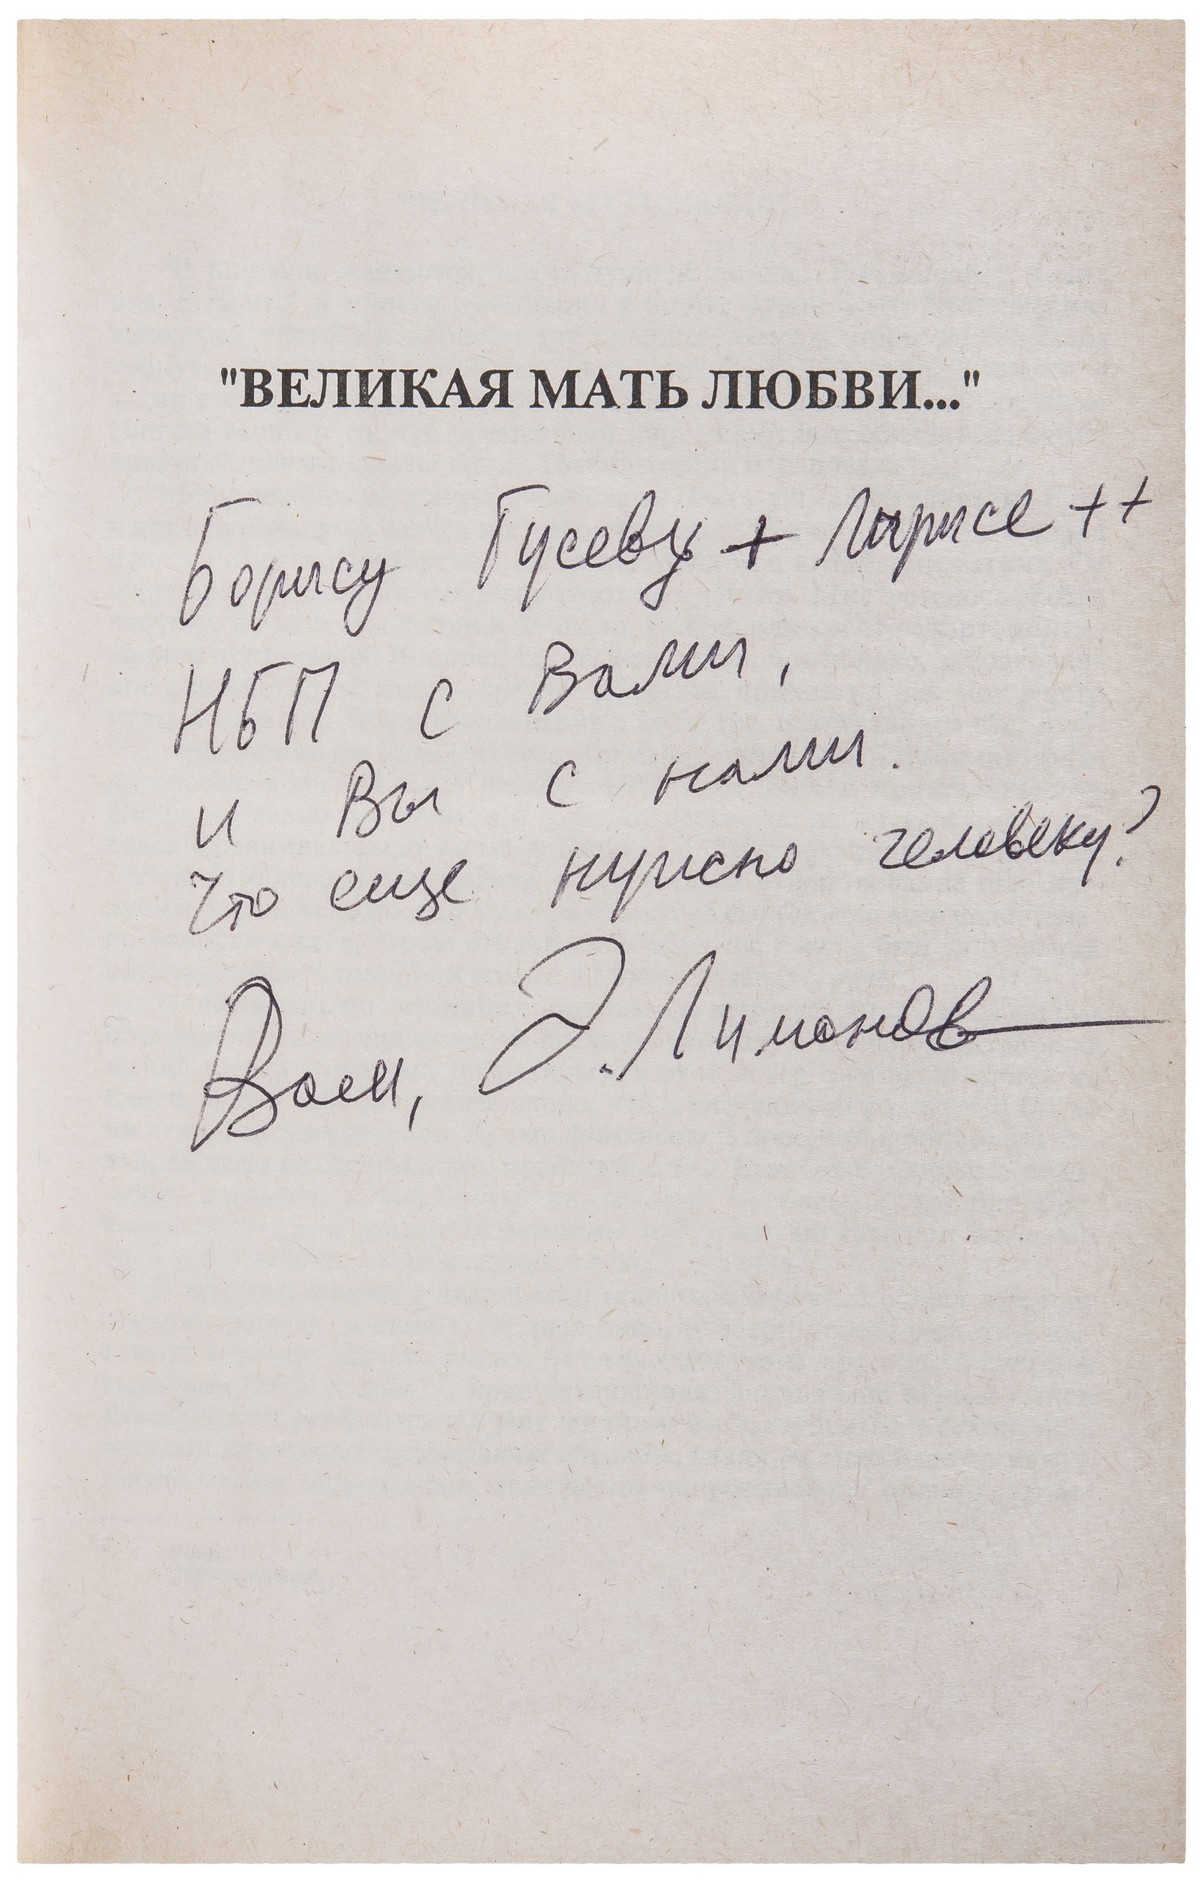 "ВЕЛИКАЯ МАТЬ ЛЮБВИ..."
Борису Гусеву + Ларисе ++
НБП с Вами,
и Вы с нами.
Что еще нужно человеку?
Ваш, Э. Лимонов